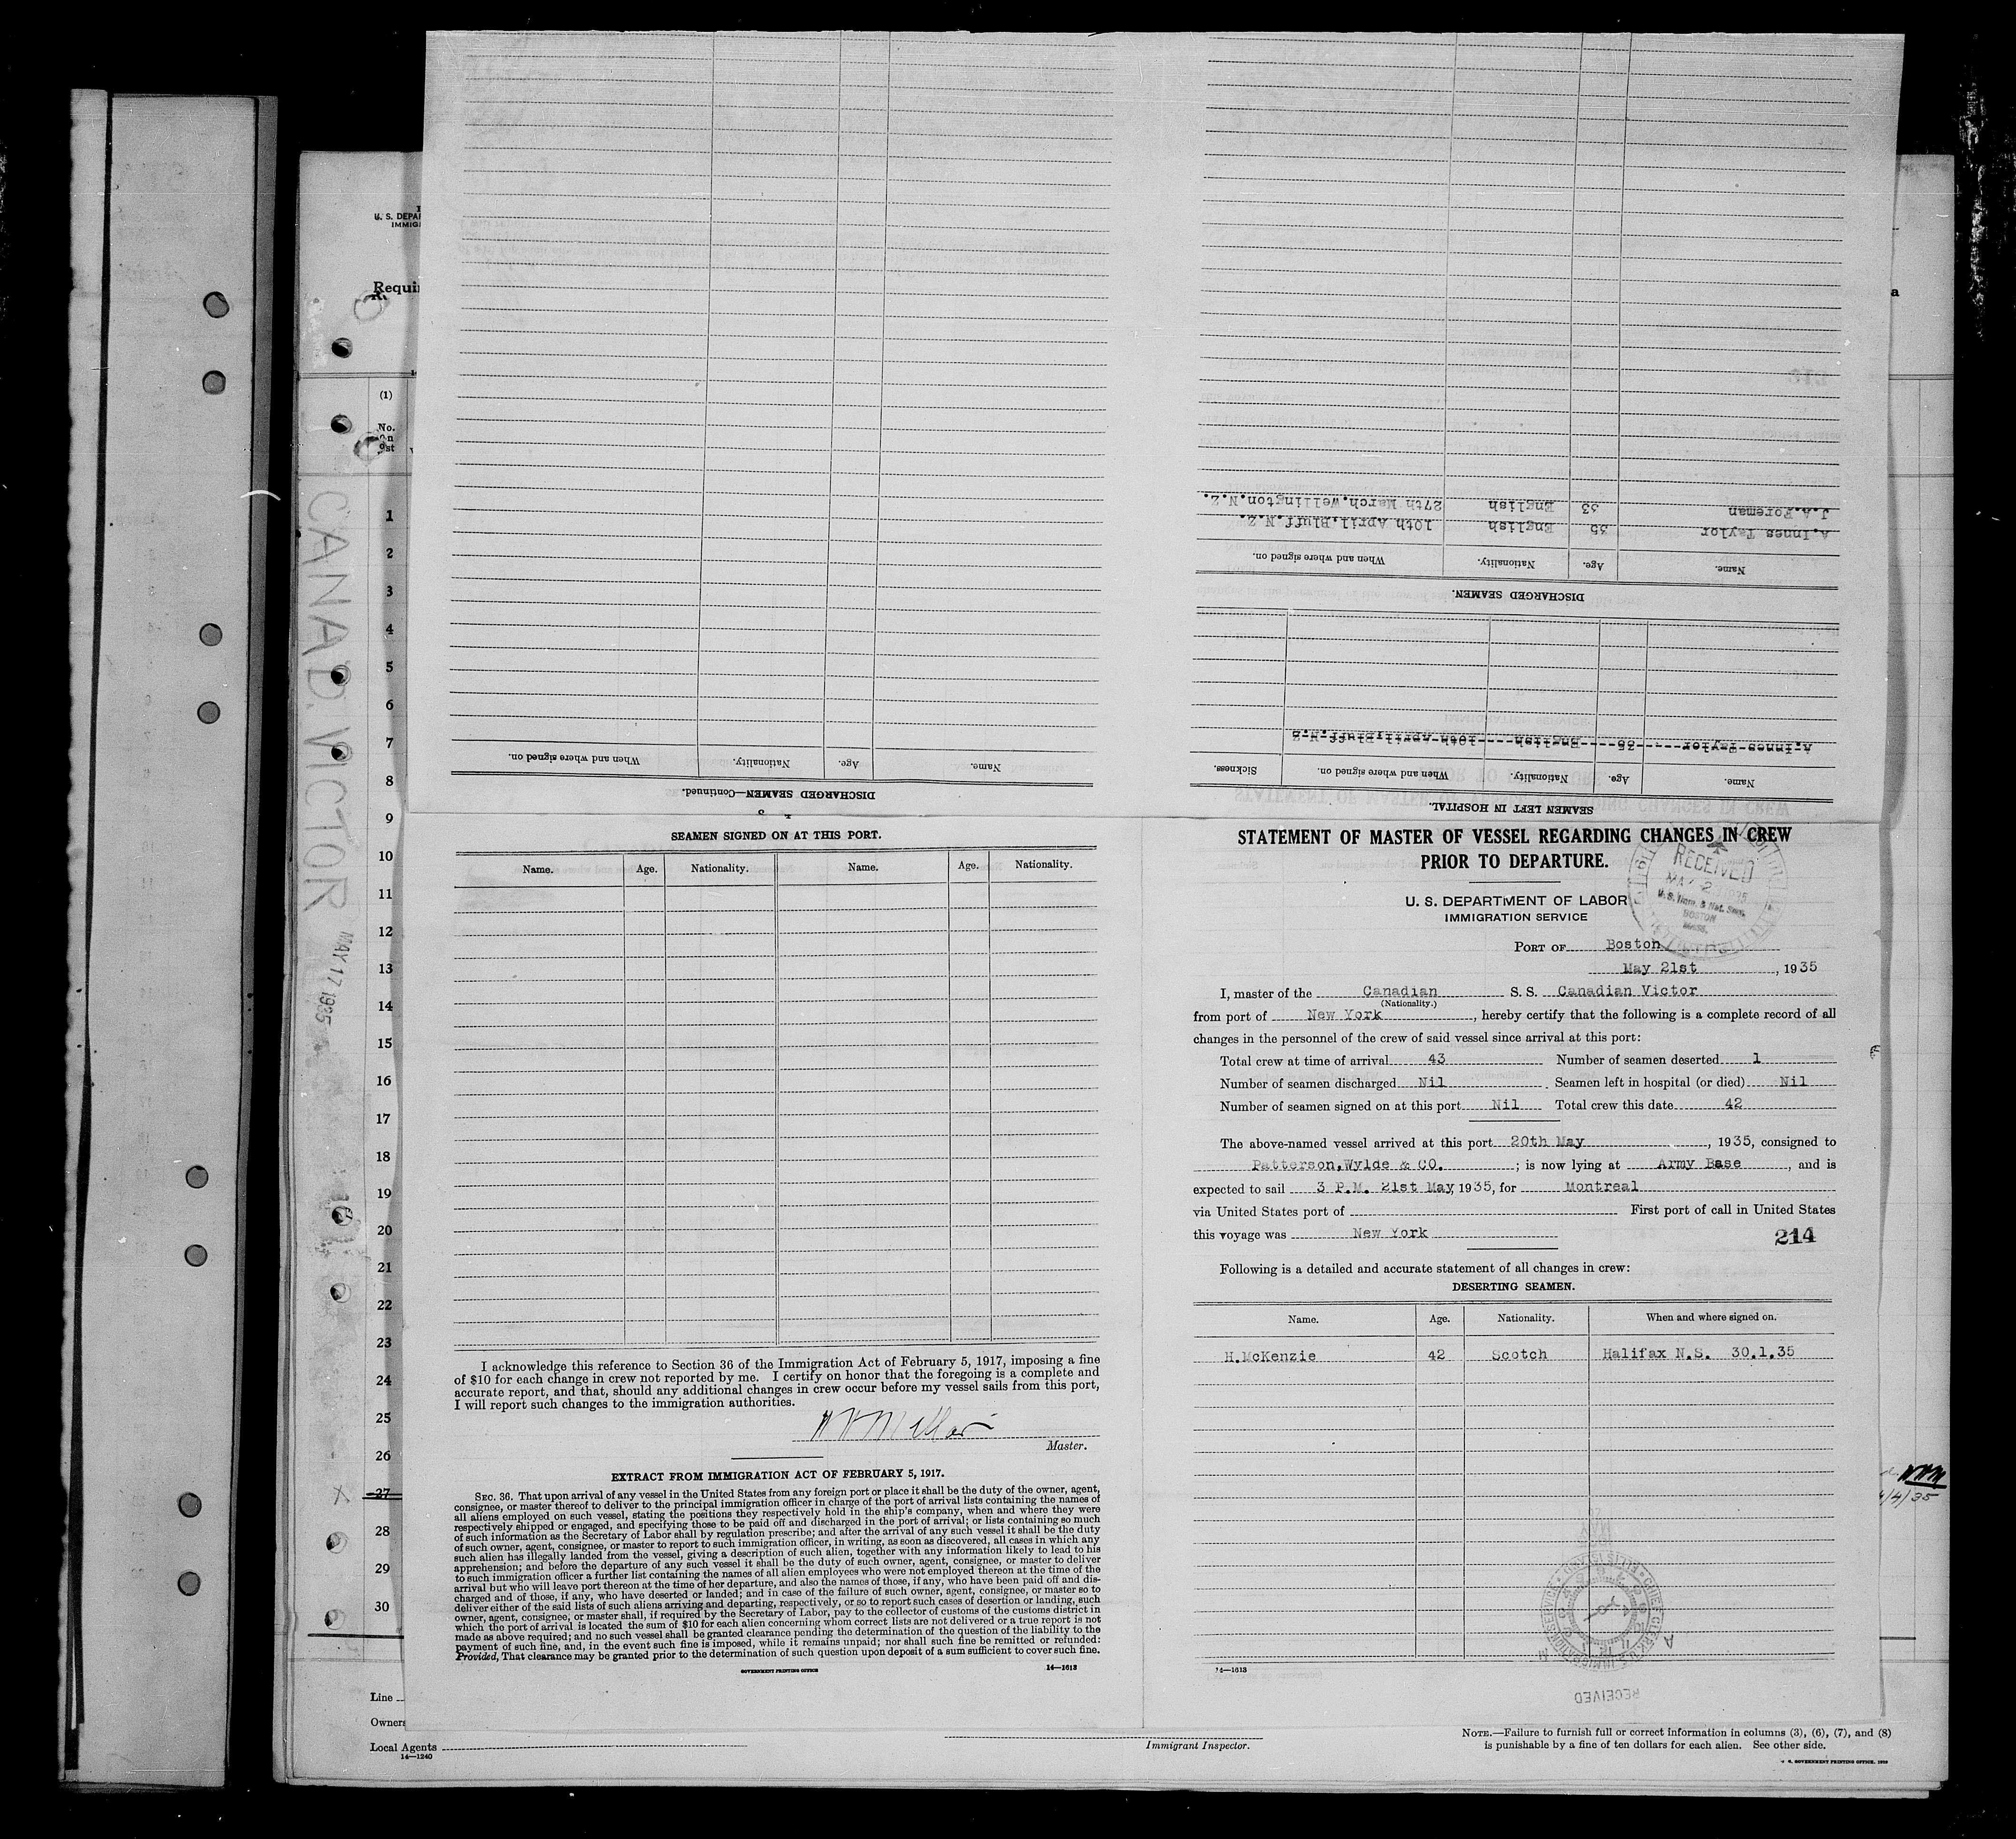 U. S. DEPAR
IMMIG
Requir
(1)
No.
on
1
2
3
4
5
6
7
8
9
10
11
12
13
14
15
16
17
18
19
20
21
22
23
24
25
26
27
28
29
30
CANAD. VICTOR
MAY 17 1935
Line
Owners
Local Agents
14—1240
Immigrant Inspector.
NOTE.—Failure to furnish full or correct information in columns (3), (6), (7), and (8)
is punishable by a fine of ten dollars for each alien. See other side.
SEAMEN LEFT IN HOSPITAL.
Name. Age. Nationality. When and where signed on. Sickness.
A.Innes Taylor 35 English 10th April,Bluff.N.Z
DISCHARGED SEAMEN.
Name. Age. Nationality. When and where signed on.
A.Innes Taylor 35 English 10th April.Bluff.N.Z.
J.A.Foreman 33 English 27th March.Wellington.N.Z.
DISCHARGED SEAMEN—Continued.
Name. Age. Nationality. When and where signed on.
SEAMEN SIGNED ON AT THIS PORT.
Name. Age. Nationality. Name. Age. Nationality.
I acknowledge this reference to Section 36 of the Immigration Act of February 5, 1917, imposing a fine
of $10 for each change in crew not reported by me. I certify on honor that the foregoing is a complete and
accurate report, and that, should any additional changes in crew occur before my vessel sails from this port,
I will report such changes to the immigration authorities.
Master.
EXTRACT FROM IMMIGRATION ACT OF FEBRUARY 5, 1917.
SEC. 36. That upon arrival of any vessel in the United States from any foreign port or place it shall be the duty of the owner, agent,
consignee, or master thereof to deliver to the principal immigration officer in charge of the port of arrival lists containing the names of
all aliens employed on such vessel, stating the positions they respectively hold in the ship's company, when and where they were
respectively shipped or engaged, and specifying those to be paid off and discharged in the port of arrival; or lists containing so much
of such information as the Secretary of Labor shall by regulation prescribe; and after the arrival of any such vessel it shall be the duty
of such owner, agent, consignee, or master to report to such immigration officer, in writing, as soon as discovered, all cases in which any
such alien has illegally landed from the vessel, giving a description of such alien, together with any information likely to lead to his
apprehension; and before the departure of any such vessel it shall be the duty of such owner, agent, consignee, or master to deliver
to such immigration officer a further list containing the names of all alien employees who were not employed thereon at the time of the
arrival but who will leave port thereon at the time of her departure, and also the names of those, if any, who have been paid off and dis-
charged and of those, if any, who have deserted or landed; and in case of the failure of such owner, agent, consignee, or master so to
deliver either of the said lists of such aliens arriving and departing, respectively, or so to report such cases of desertion or landing, such
owner, agent, consignee, or master shall, if required by the Secretary of Labor, pay to the collector of customs of the customs district in
which the port of arrival is located the sum of $10 for each alien concerning whom correct lists are not delivered or a true report is not
made as above required; and no such vessel shall be granted clearance pending the determination of the question of the liability to the
payment of such fine, and, in the event such fine is imposed, while it remains unpaid; nor shall such fine be remitted or refunded:
Provided, That clearance may be granted prior to the determination of such question upon deposit of a sum sufficient to cover such fine.
GOVERNMENT PRINTING OFFICE 14—1613
STATEMENT OF MASTER OF VESSEL REGARDING CHANGES IN CREW
PRIOR TO DEPARTURE.
RECEIVED
BOSTON
MASS.
U. S. DEPARTMENT OF LABOR
IMMIGRATION SERVICE
PORT OF Boston
May 21st, 1935
I, master of the Canadian S. S. Canadian Victor
(Nationality.)
from port of New York, hereby certify that the following is a complete record of all
changes in the personnel of the crew of said vessel since arrival at this port:
Total crew at time of arrival 43 Number of seamen deserted 1
Number of seamen discharged Nil Seamen left in hospital (or died) Nil
Number of seamen signed on at this port Nil Total crew this date 42
The above-named vessel arrived at this port 20th May, 1935, consigned to
Patterson,Wylde & CO. ; is now lying at Army Base, and is
expected to sail 3 P.M. 21st May, 1935, for Montreal
via United States port of First port of call in United States
this voyage was New York
214
Following is a detailed and accurate statement of all changes in crew:
DESERTING SEAMEN.
Name. Age. Nationality. When and where signed on.
H.McKenzie 42 Scotch Halifax N.S. 30.1.35
14—1613
RECEIVED